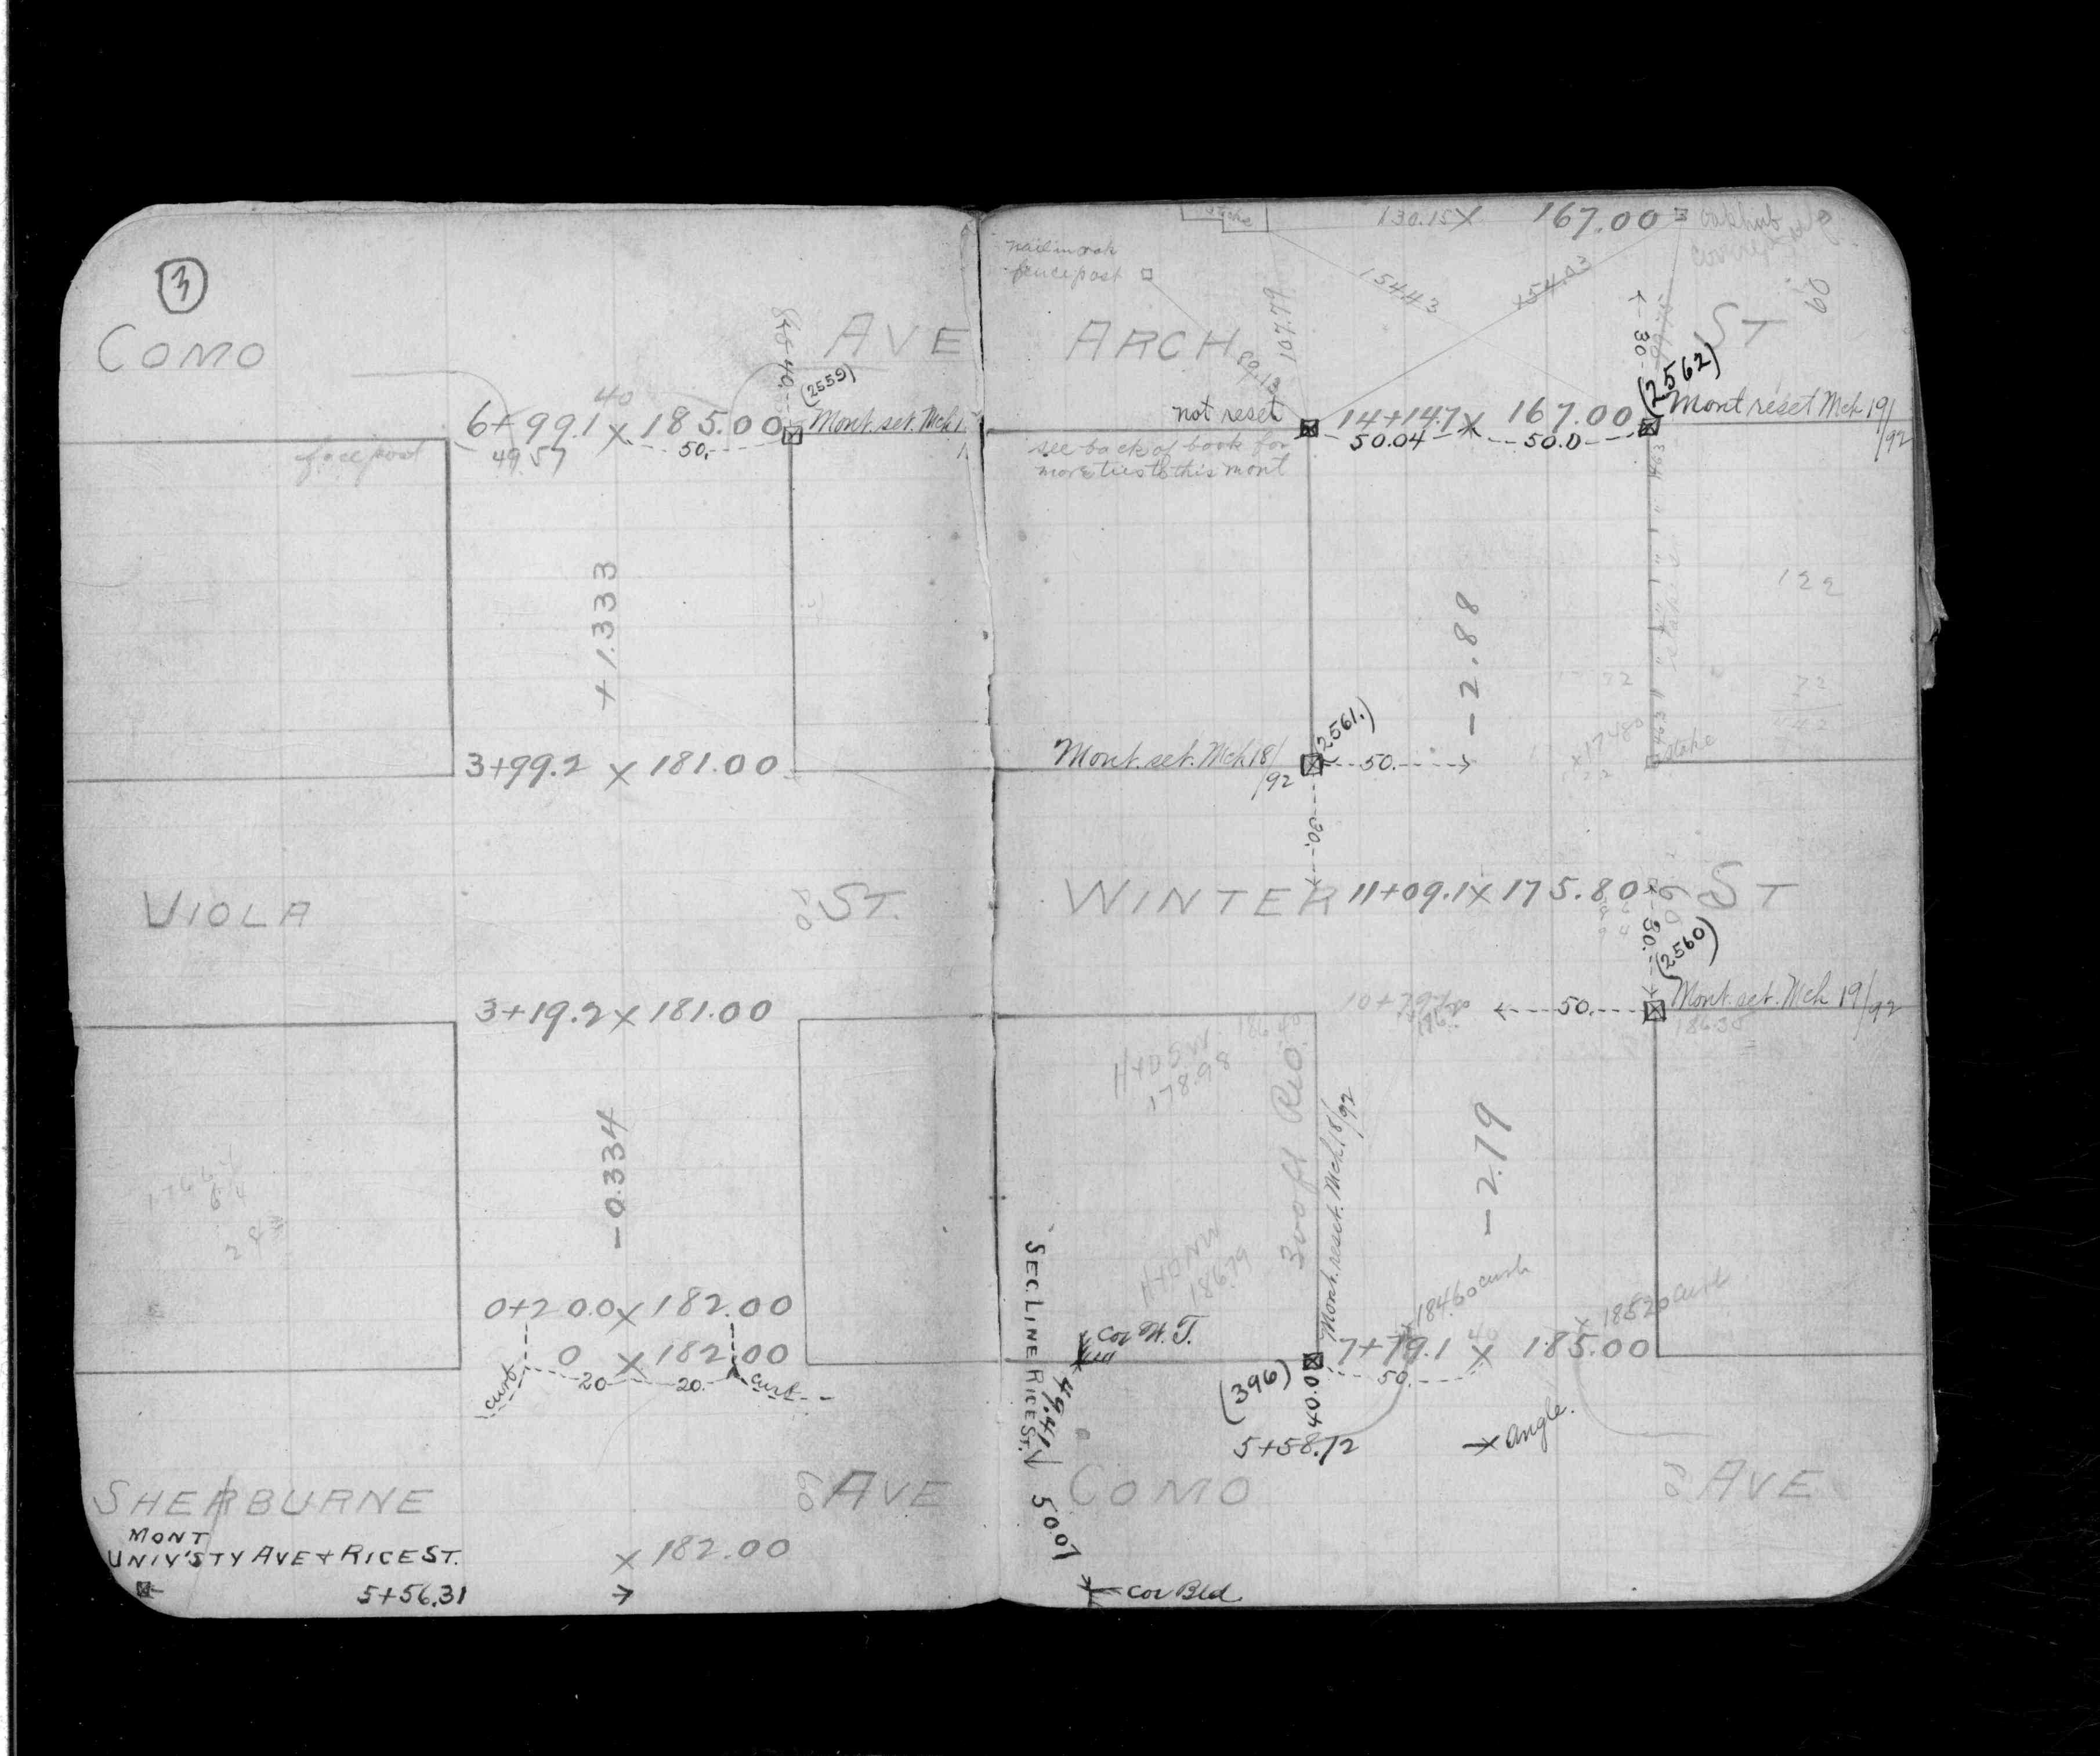 3
COMO AVE
40.
(2559)
40
6+99.1 × 185.00 Mont. set. Mch
49.57 50.
+1.333
3+99.2 × 181.00
VIOLA ST.
3+19.2 × 181.00
-0.334
0+20.0 × 182.00
0 × 182.00
curb 20 20. curb
SHERBURNE 60 AVE
MONT
UNIV'STY AVE & RICE ST. × 182.00
5+56.31
stake 130.15 × 167.00 oak hub
nail in oak
fence post
154.43 154.03
107.79
89.13
30
60
ARCH ST
(2562)
not reset 14+14.7 × 167.00 Mont reset Mch 19/92
50.04 50.0
see back of book for
more ties to this mont
463
-2.88
122
72
42
(2561.)
Mont. set. Mch 18/92 50.
174.80
stake
30.
WINTER 11+09.1 × 175.80 ST
60
30.
(2560)
50. Mont. set. Mch 19/92
186.38
178.98
300 ft Rad
Mont. reset. Mch 18/92
-2.19
186.79
SEC. LINE RICE ST.
Cor W. T.
184.60 curb
185.20 curb
7+79.1 × 185.00
50.
(396)
40.0
49.41
5+58.72
Angle.
COMO AVE
50.07
Cor Bld.